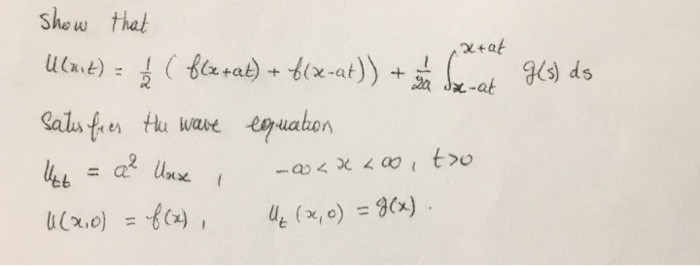 Show that
u(x,t) = 1/2 ( f(x+at) + f(x-at)) + 1/2a ∫_{x-at}^{x+at} g(s) ds
Satisfies the wave equation
u_tt = a² u_xx , -∞ < x < ∞, t>0
u(x,0) = f(x), u_t (x,0) = g(x).